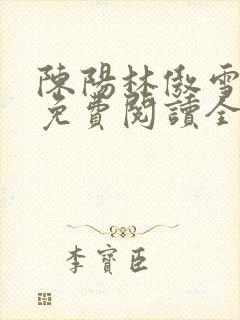 陳陽林傲雪
免費閱讀全
李寶臣